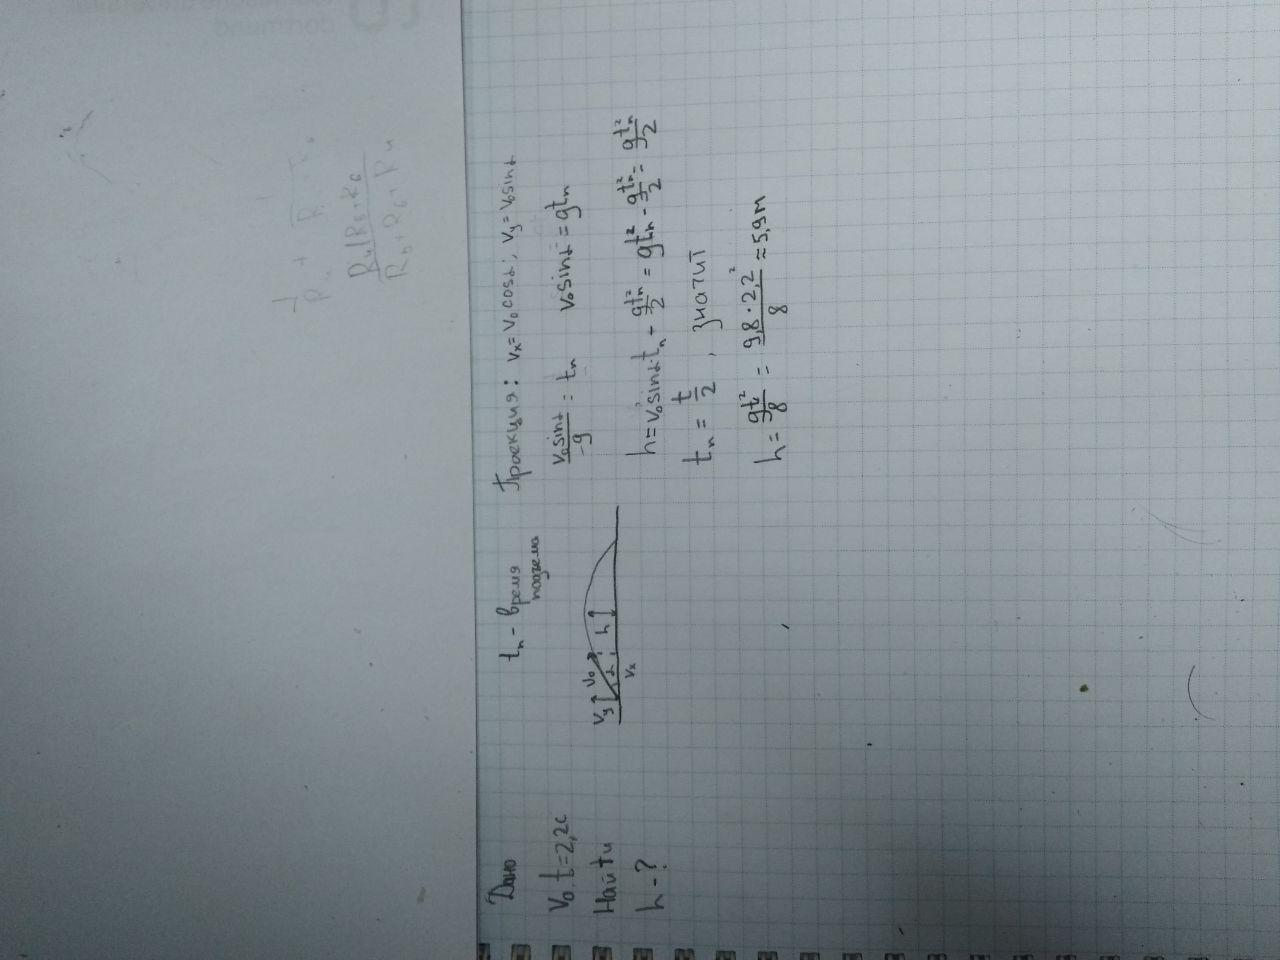 Дано
V₀ t=2,2с
Найти
h-?
tₙ - время
подъема
Vy V₀ α h
Vx
Проекция: Vx = V₀ cosα; Vy = V₀ sinα
V₀ sinα / -g = tₙ V₀ sinα = gtₙ
h = V₀ sinα·tₙ - gtₙ²/2 = gtₙ² - gtₙ²/2 = gtₙ²/2
tₙ = t/2, значит
h = gt²/8 = 9,8·2,2²/8 ≈ 5,9м